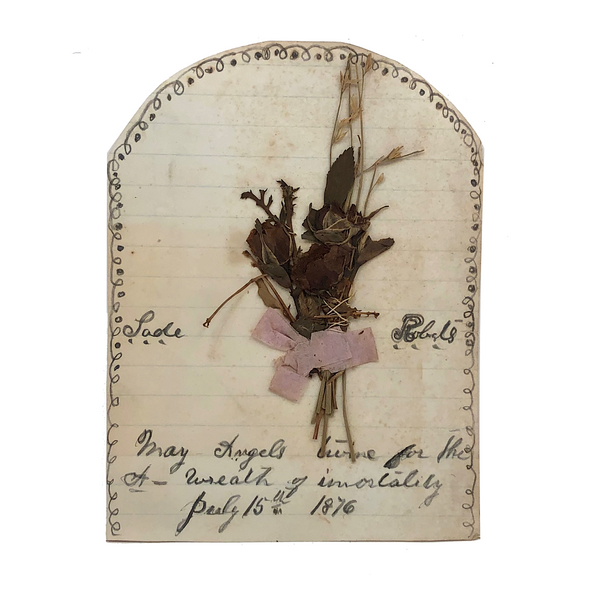 Sade Robets
May Angels twine for the
A - wreath of imortality
July 15th 1876